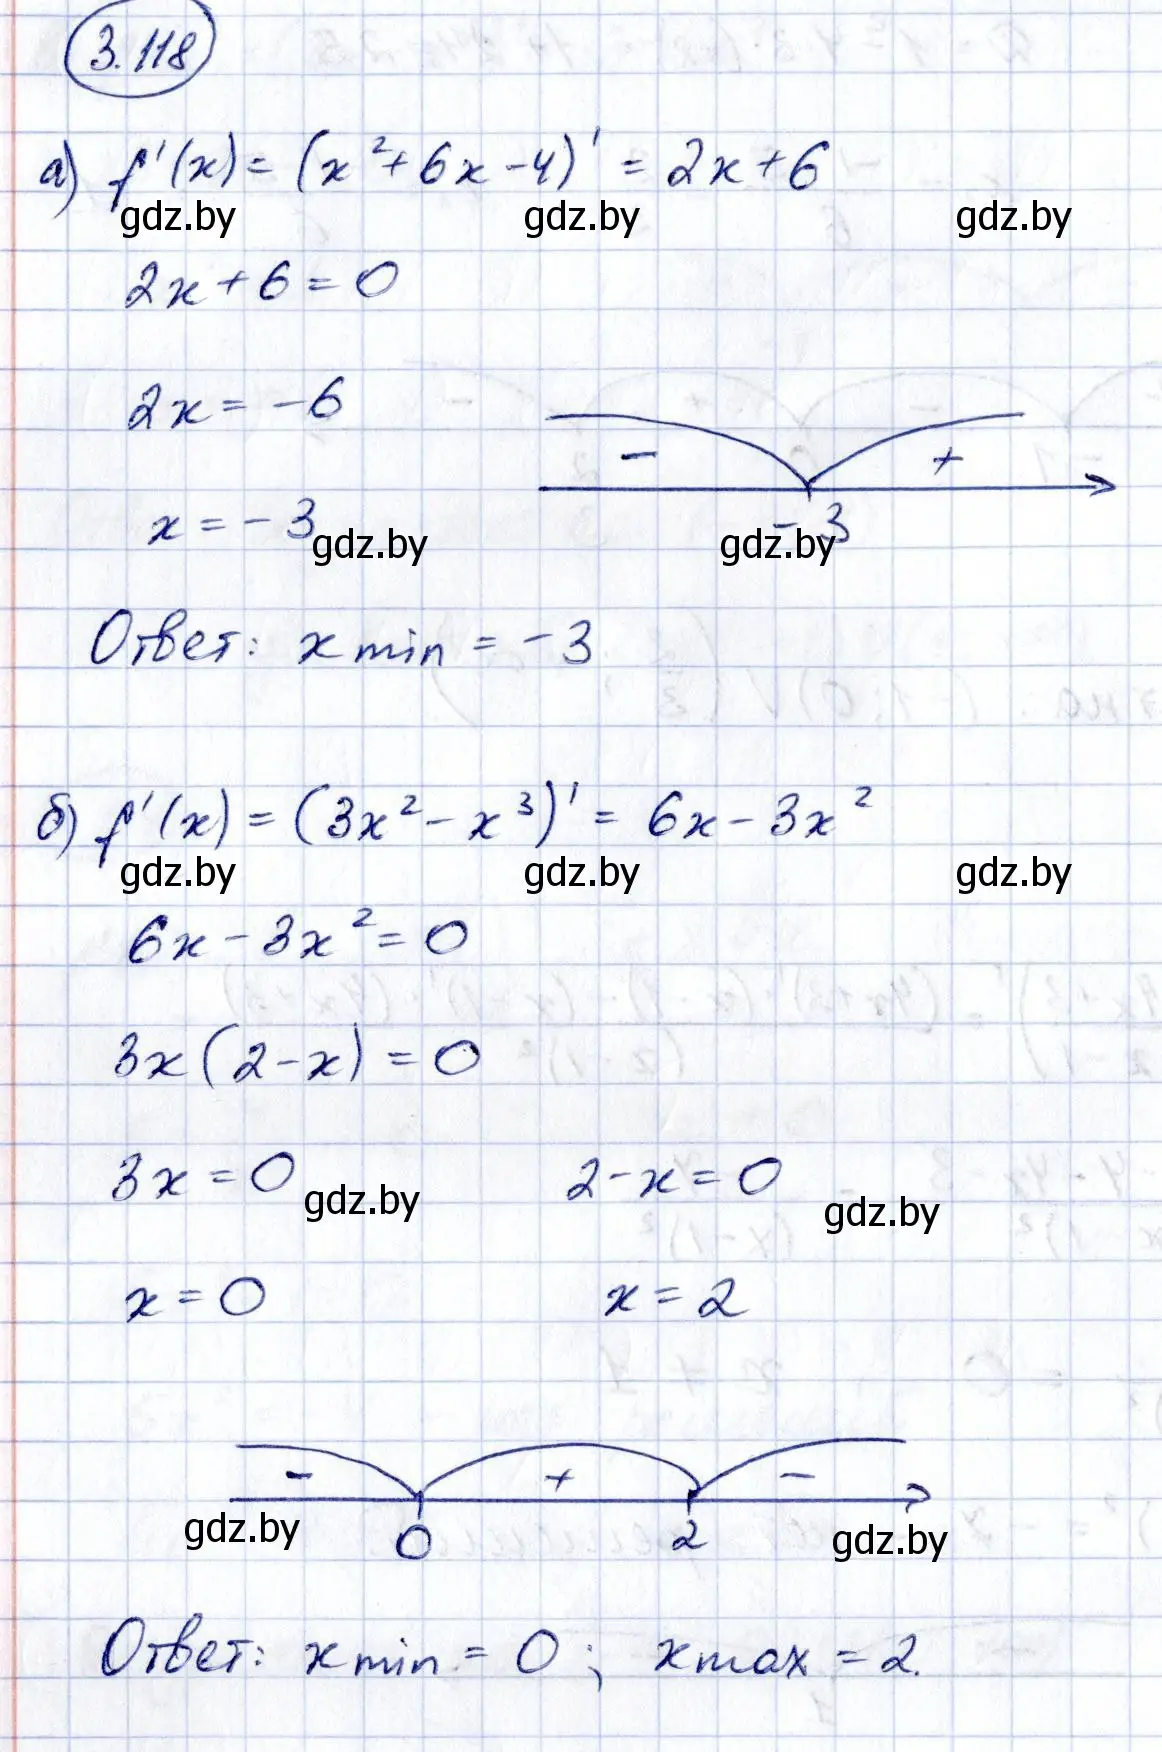 3.118
а) f'(x) = (x²+6x-4)' = 2x+6
gdz.by gdz.by gdz.by
2x+6=0
2x=-6
- +
x=-3
-3
gdz.by gdz.by
Ответ: x min = -3
б) f'(x) = (3x²-x³)' = 6x-3x²
gdz.by gdz.by gdz.by
6x-3x²=0
3x(2-x)=0
3x=0 2-x=0
gdz.by gdz.by
x=0 x=2
- + -
gdz.by 0 2 gdz.by
Ответ: x min = 0; x max = 2.